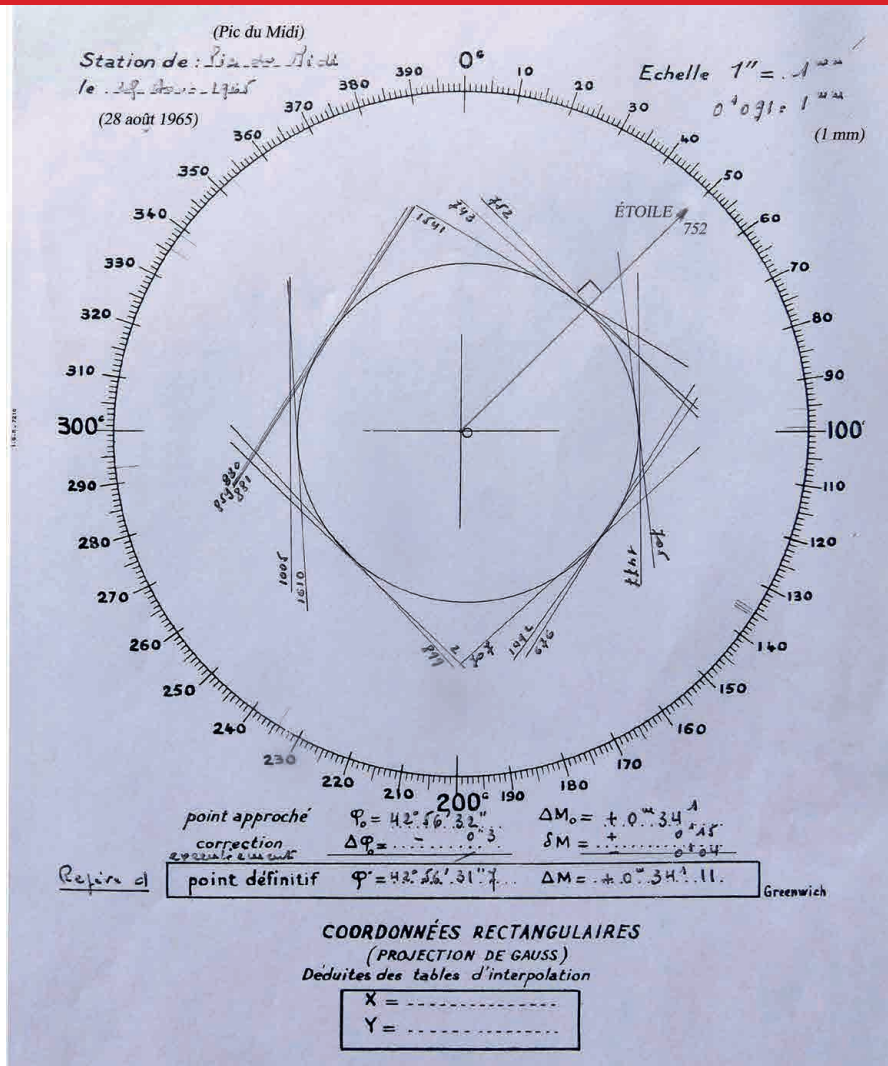 (Pic du Midi)
Station de : Pic du Midi
le
(28 août 1965)
Echelle 1" = 1 mm
0ˢ091 = 1 mm
(1 mm)
0ᴳ
10
20
30
40
50
60
70
80
90
100ᴳ
110
120
130
140
150
160
170
180
190
200ᴳ
210
220
230
240
250
260
270
280
290
300ᴳ
310
320
330
340
350
360
370
380
390
ÉTOILE
752
752
743
1541
830
1005
1610
2
707
1492
676
point approché φ₀ = 42° 56' 32" ΔM₀ = + 0ᵐ 34ˢ
correction Δφ₀ = - 0"3 δM = + 0ˢ15
- 0ˢ04
Repère
point définitif φ = 42° 56' 31"7 ΔM = + 0ᵐ 34ˢ 11
Greenwich
COORDONNÉES RECTANGULAIRES
(PROJECTION DE GAUSS)
Déduites des tables d'interpolation
X =
Y =